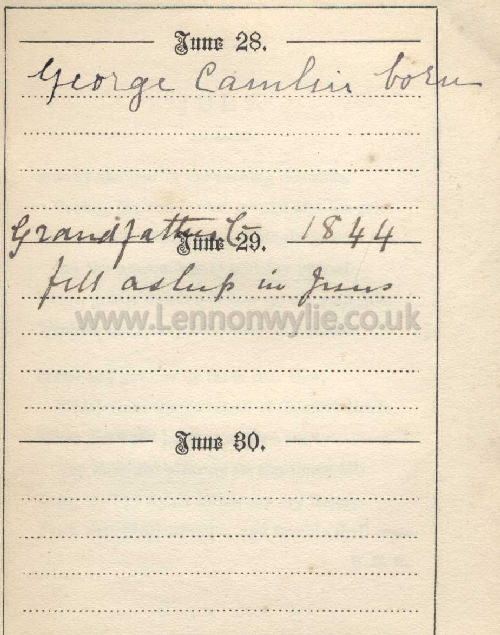 June 28.
George Camlin born
Grandfather C 1844
June 29.
fell asleep in Jesus
www.Lennonwylie.co.uk
June 30.